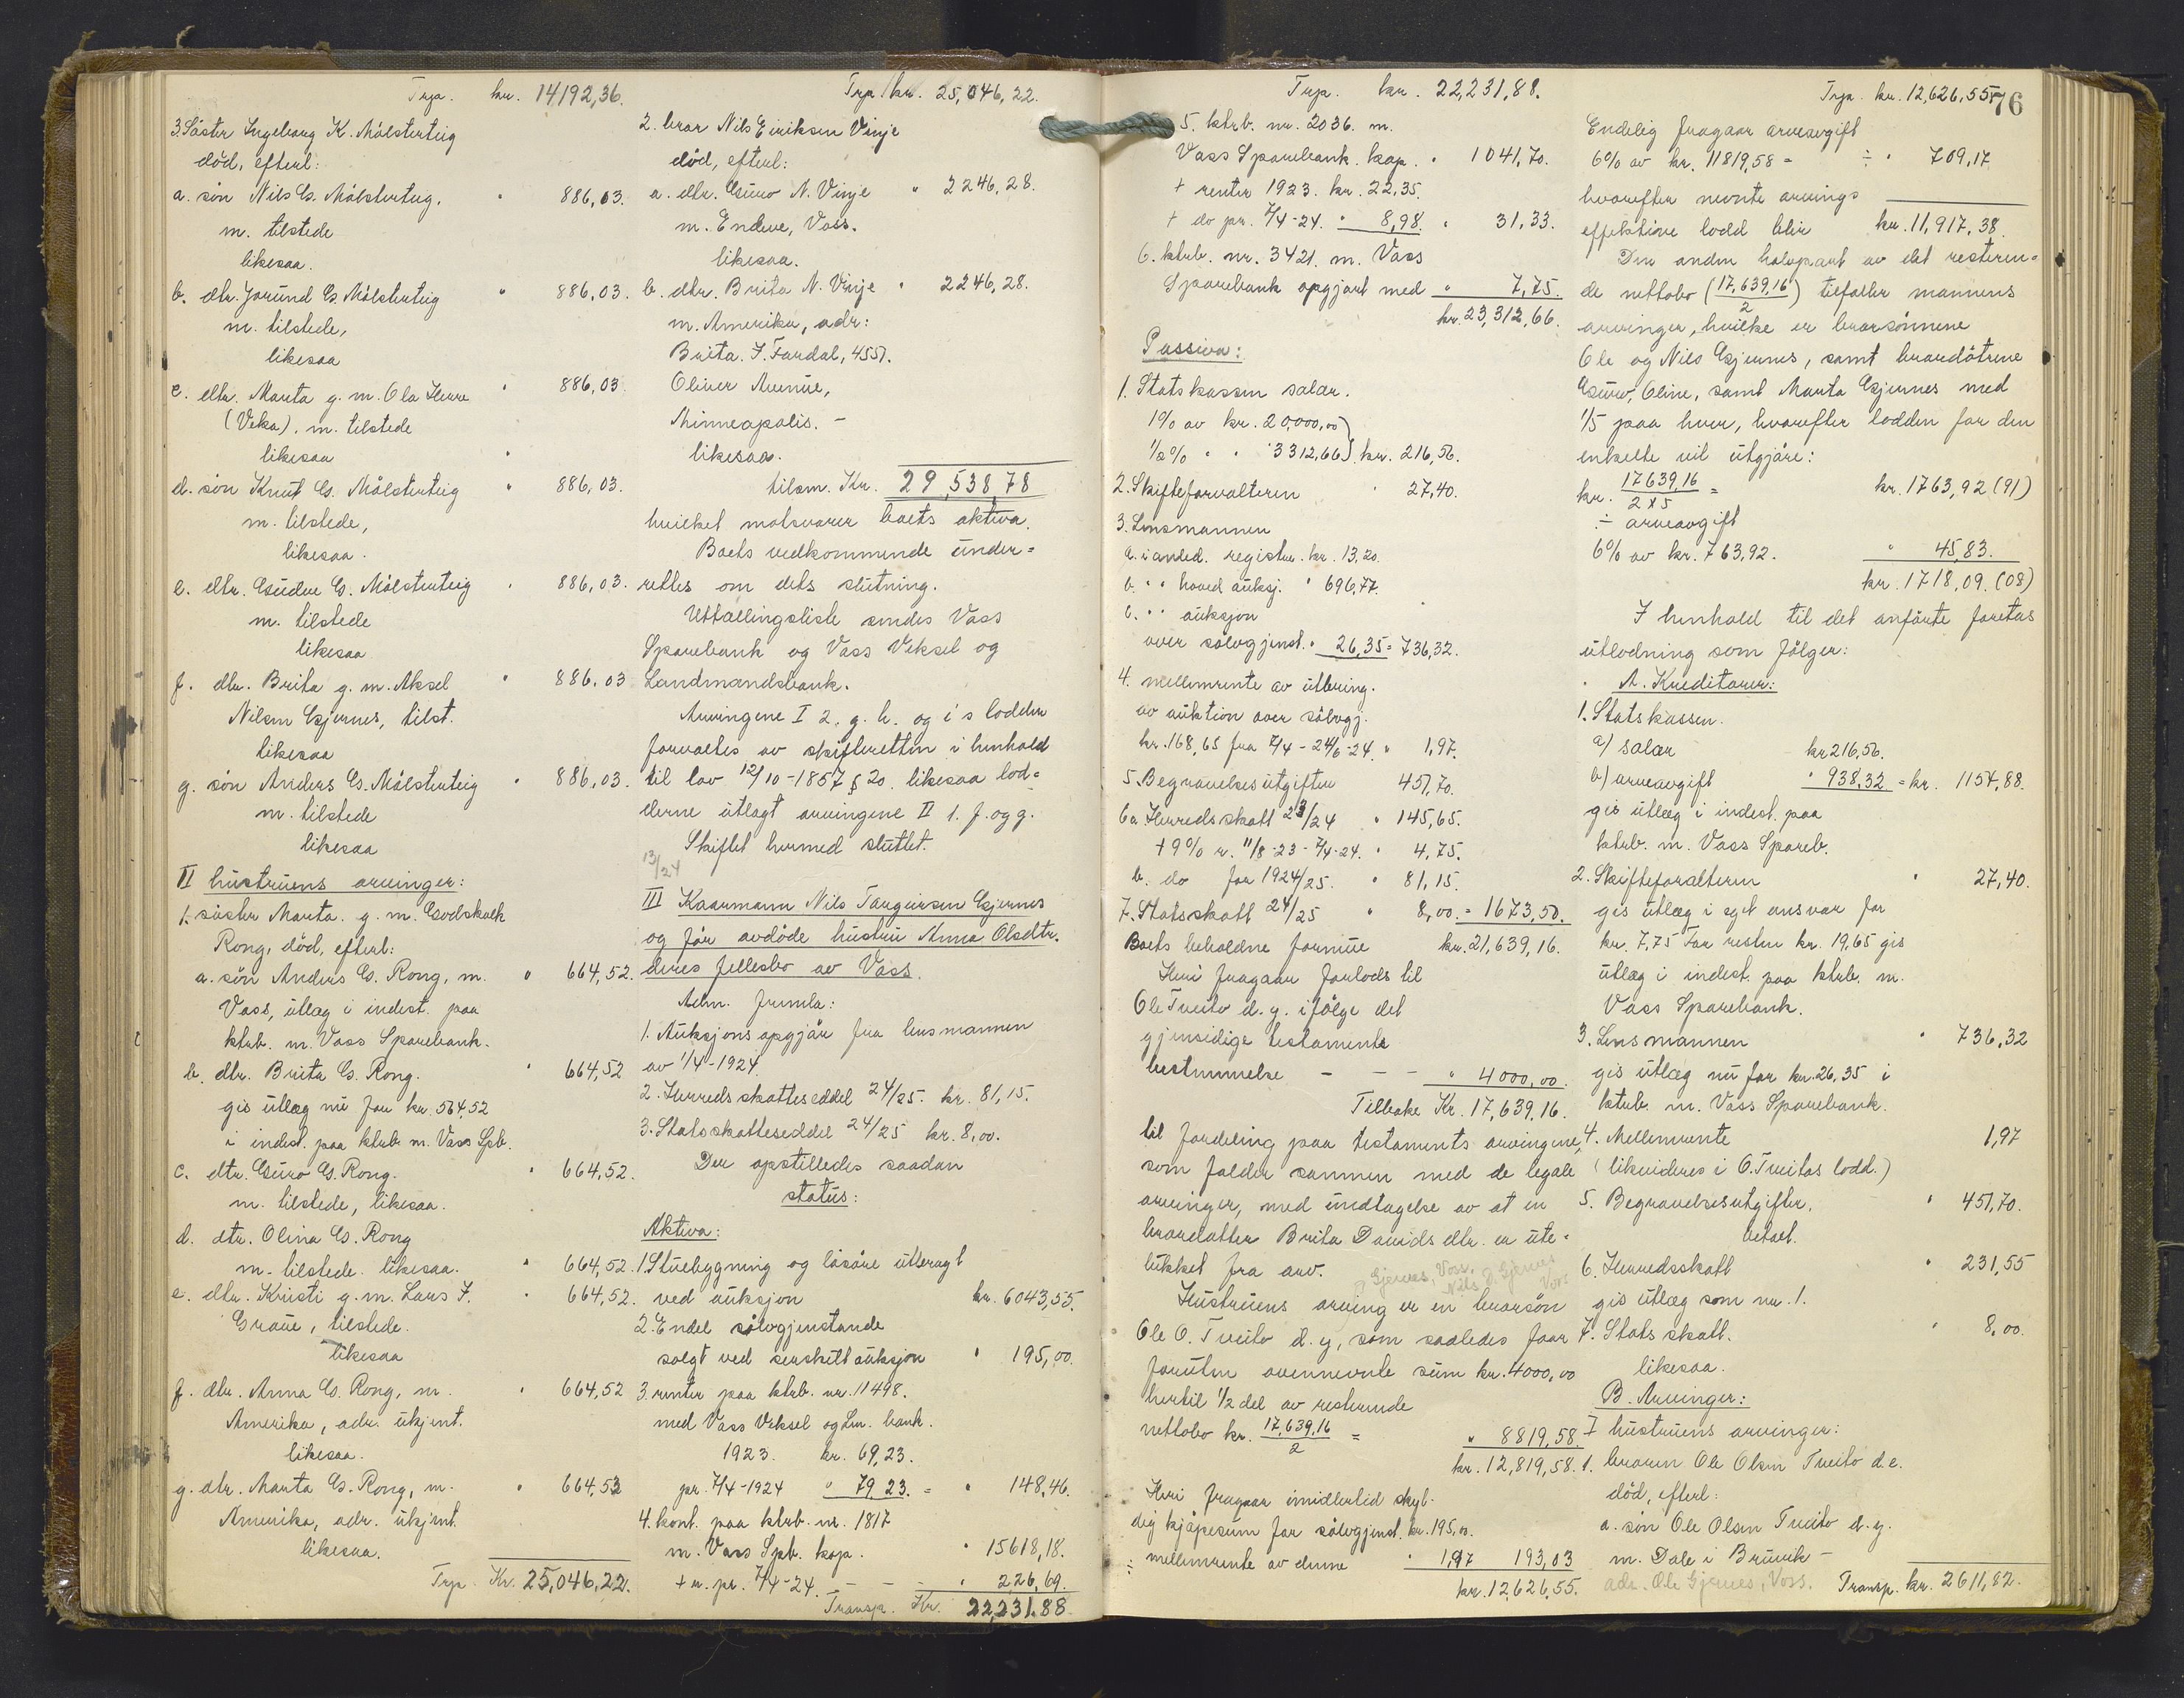 Trp. kr. 14192,36.
3. Söster Ingeborg K. Mölsterteig
död, efterl:
a. sön Nils G. Mölsterteig, " 886,03.
m. tilstede
likesaa.
b. dtr. Jorund G. Mölsterteig " 886,03.
m. tilstede,
likesaa
c. dtr. Marta g. m. Ola Herre " 886,03
(Veka), m. tilstede
likesaa
d. sön Knut G. Mölsterteig " 886,03.
m. tilstede,
likesaa.
e. dtr. Gudve G. Mölsterteig " 886,03.
m. tilstede
likesaa
f. dtr. Brita g. m. Aksel " 886.03
Nilsen Gjernes, tilst.
likesaa
g. sön Anders G. Mölsterteig " 886,03.
m. tilstede
likesaa
II hustruens arvinger:
1. söster Marta. g. m. Godskalk
Rong, död, efterl:
a. sön Anders G. Rong, m. " 664,52.
Voss, utlæg i indest. paa
ktrb. m. Voss Sparebank.
b. dtr. Brita G. Rong. " 664,52
gis utlæg nu for kr. 564,52
i indest. paa ktrb. m. Voss Spb.
c. dtr. Guro G. Rong. " 664,52.
m. tilstede, likesaa.
d. dtr. Olina G. Rong
m. tilstede. likesaa. " 664,52.
e. dtr. Kristi g. m. Lars J. " 664,52.
Graue, tilstede.
likesaa
f. dtr. Anna G. Rong, m. " 664,52
Amerika, adr. ukjent.
likesaa.
g. dtr. Marta G. Rong, m. " 664,53
Amerika, adr. ukjent.
likesaa.
Trp. Kr. 25,046,22.
Trp kr. 25,046,22.
2. bror Nils Eiriksen Vinje
död, efterl:
a. dtr. Guro N. Vinje " 2246,28.
m. Endeve, Voss.
likesaa.
b. dtr. Brita N. Vinje " 2246,28.
m. Amerika, adr:
Brita J. Fardal, 4551.
Oliver Avenue,
Minneapolis. -
likesaa.
tilsm. Kr. 29,538,78
hvilket motsvarer boets aktiva.
Boets vedkommende under=
rettes om dets slutning.
Uttællingsliste sendes Voss
Sparebank og Voss Veksel og
Landmandsbank.
Arvingene I 2. g. h. og i's lodder
forvaltes av skifteretten i henhold
til lov 12/10-1857 § 20. likesaa lod=
derne utlagt arvingene II 1. f. og g.
Skiftet hermed sluttet.
13/24
III Kaarmann Nils Torgersen Gjernes
og för avdöde hustru Anna Olsdtr.
deres fellesbo av Voss.
Adm. fremla:
1. Auksjonsopgjör fra lensmannen
av 1/4-1924.
2. Herredsskatteseddel 24/25. kr. 81,15.
3. Statsskatteseddel 24/25 kr. 8,00.
Der opstilledes saadan
status:
Aktiva:
1. Stuebygning og lösöre utbragt
ved auksjon kr. 6043,55.
2. Endel sölvgjenstande
solgt ved serskilt auksjon " 195,00.
3. renter paa ktrb. nr. 11498.
med Voss Veksel og Lm. bank.
1923. kr. 69,23.
pr. 7/4-1924 " 79,23. = " 148,46.
4. kont. paa ktrb. nr. 1817
m. Voss Spb. kap. " 15618,18.
+ r. pr. 7/4-24. - - - " 226,69.
Transp. Kr. 22,231,88
Trp. kr. 22,231,88.
5. ktrb. nr. 2036. m.
Voss Sparebank. kap. " 1041,70.
+ renter 1923. kr. 22,35.
+ do pr. 7/4-24. " 8,98. " 31,33.
6. ktrb. nr. 3421. m. Voss
Sparebank opgjort med " 7,75.
kr. 23,312,66.
Passiva:
1. Statskassen salær.
1% av kr. 20,000,00
1/2% " " 3312,66 } kr. 216,56.
2. Skifteforvalteren " 27,40.
3. Lensmannen
a. i anled. registr. kr. 13,20.
b. " " hoved auksj. " 696,77.
c. " " auksjon
over sölvgjenst. " 26,35 = 736,32.
4. mellemrente av utbring.
av auktion over sölvgj.
kr. 168,65 fra 7/4-24/6-24. " 1,97.
5. Begravelsesutgifter 451,70.
6 a. Herredsskatt 23/24 " 145,65.
+ 9% r. 11/8-23 - 7/4-24. " 4,75.
b. do for 1924/25. " 81,15.
7. Statsskatt 24/25 " 8,00. = 1673,50.
Boets beholdne formue kr. 21,639,16.
Heri fragaar forlods til
Ole Tveito d. y. ifölge det
gjensidige testamente
bestemmelse - - - " 4000,00.
Tilbake Kr. 17,639,16.
til fordeling paa testaments arvingene,
som falder sammen med de legale
arvinger, med undtagelse av at en
brordatter Brita Davids dtr. er ute=
lukket fra arv.
Gjernes, Voss.
Hustruens arving er en brorsön
Ole O. Tveito d. y, som saaledes faar
foruten ovennevnte sum kr. 4000,00
hertil 1/2 del av resterende
nettobo kr. 17,639,16 / 2 = " 8819,58.
kr. 12,819,58.
Heri fragaar imidlertid skyl-
dig kjöpesum for sölvgjenst. kr. 195,00.
÷ mellemrente av denne " 1,97 193,03
kr. 12,626,55.
Trp. kr. 12,626,55.
76
Endelig fragaar arveavgift
6% av kr. 11819,58 = ÷ " 709,17
hvorefter nevnte arvings
effektive lodd blir kr. 11,917,38.
Den anden halvpart av det resteren=
de nettobo (17,639,16 / 2) tilfaller mannens
arvinger, hvilke er brorsönnene
Ole og Nils Gjernes, samt brordötrene
Guro, Oline, samt Marta Gjernes med
1/5 paa hver, hvorefter lodden for den
enkelte vil utgjöre:
kr. 17639,16 / 2 x 5 = kr. 1763,92 (91)
÷ arveavgift
6% av kr. 763,92. " 45,83.
kr. 1718,09. (08)
I henhold til det anförte foretas
utlodning som fölger:
A. Kreditorer:
1. Statskassen.
a) salær kr. 216,56.
b) arveavgift " 938,32 = kr. 1154,88.
gis utlæg i indest. paa
ktrb. m. Voss Spareb.
2. Skifteforvalteren " 27,40.
gis utlæg i eget ansvar for
kr. 7,75 For resten kr. 19,65 gis
utlæg i indest. paa ktrb. m.
Voss Sparebank.
3. Lensmannen " 736,32
gis utlæg nu for kr. 26,35 i
ktrb. m. Voss Sparebank.
4. Mellemrente 1,97
(likvideres i O. Tveitos lodd.)
5. Begravelsesutgifter, " 451,70.
betalt.
6. Herredsskatt " 231,55
gis utlæg som nr. 1.
7. Stats skatt. " 8,00.
likesaa.
B. Arvinger:
I hustruens arvinger:
1. broren Ole Olsen Tveito d.e.
död, efterl:
a. sön Ole Olsen Tveito d. y.
m. Dale i Bruvik -
adr. Ole Gjernes, Voss.
Transp. kr. 2611,82.